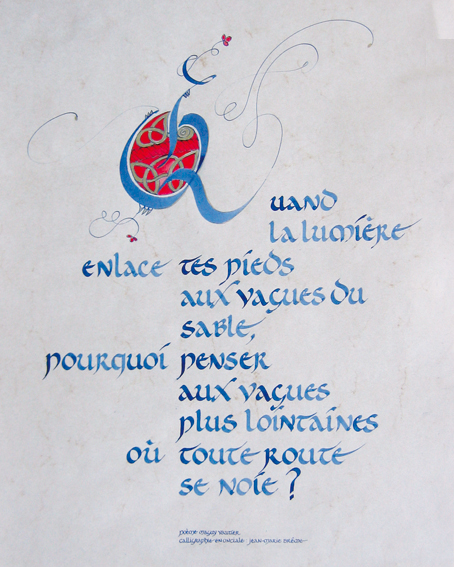 Quand
la lumière
enlace tes pieds
aux vagues du
sable,
pourquoi penser
aux vagues
plus lointaines
où toute route
se noie ?
poème maguy vautier
calligraphie en onciale jean-marie